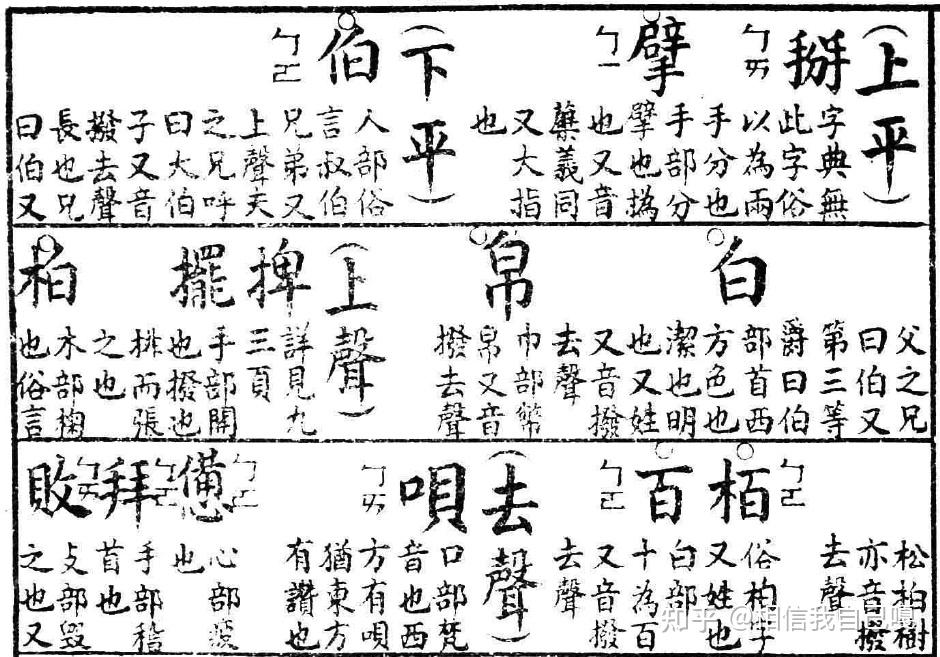 （上平）
掰 ㄅㄞ
字典無
此字俗
以為兩
手分也
擘
手部分
擘也撝
也又音
蘗義同
又大指
也
（下平）
伯
人部俗
言叔伯
兄弟又
上聲夫
之兄呼
曰大伯
子又音
撥去聲
長也兄
曰伯又
父之兄
曰伯又
第三等
爵曰伯
白
部首西
方色也
潔也明
也又姓
又音撥
去聲
帛
巾部幣
帛又音
撥去聲
（上聲）
捭
詳見九
三頁
擺
手部開
也撥也
排而張
之也
柏
木部掬
也俗言
松柏樹
亦音撥
去聲
栢
俗柏字
又姓也
百
白部
十為百
又音撥
去聲
（去聲）
唄 ㄅㄞ
口部梵
音也西
方有唄
猶東方
有讚也
憊
心部疲
也
拜
手部稽
首也
敗
攴部毀
之也又
知乎 @相信我自己嘎